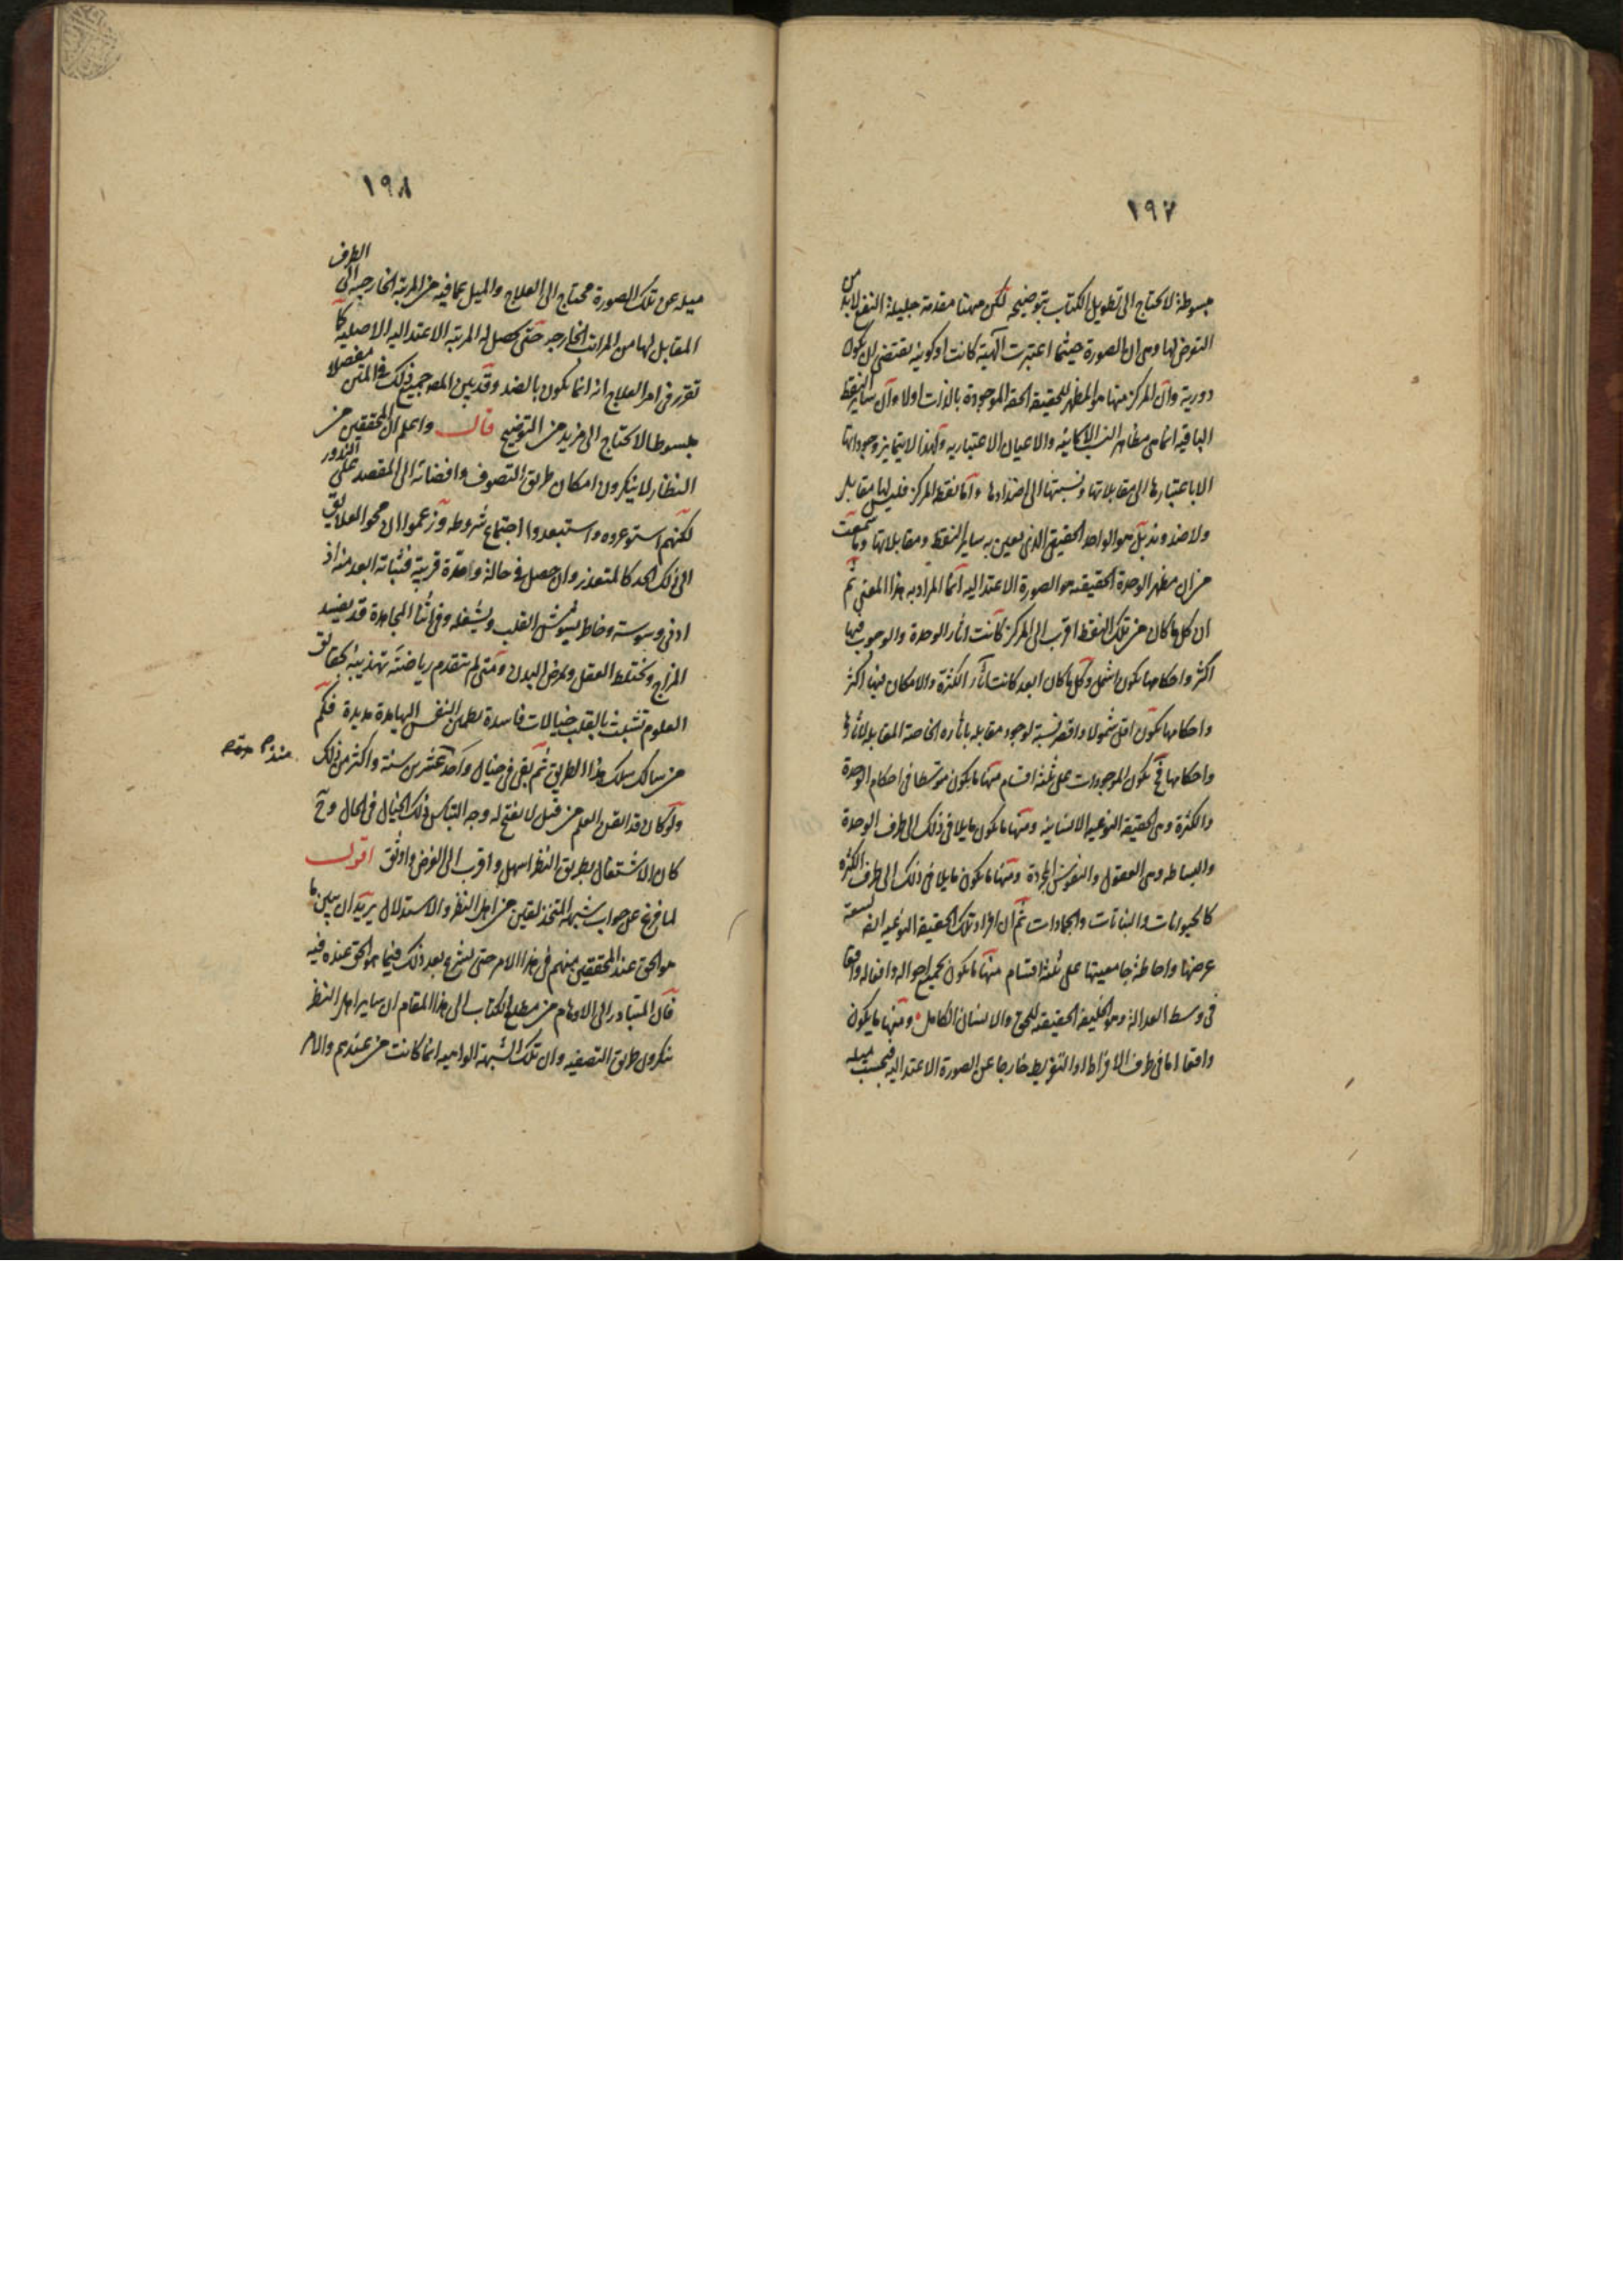 ١٩٧
مبسوطة لا يحتاج الى تطويل الكتاب بتوضيحه لكن ههنا مقدمة جليلة النفع لابد من
التعرض لها وهى ان الصورة حيثما اعتبرت آلهية كانت او كونية يقتضى ان يكون
دورية وان المركز منها هو المظهر للحقيقة الحقة الموجودة بالذات اولا وان ساير النقط
الباقيه انما هى مظاهر النسب الامكانية والاعيان الاعتباريه ولهذا لا يتمايز وجوداتها
الا باعتبارها الى مقابلاتها ونسبتها الى اضدادها واما نقطة المركز فليس لها مقابل
ولا ضد وند بل هو الواحد الحقيقى الذى تعين به ساير النقط ومقابلاتها وما سمعت
من ان مظهر الوحدة الحقيقيه هو الصورة الاعتداليه انما المراد به هذا المعنى ثم
ان كل ما كان من تلك النقط اقرب الى المركز كانت اثار الوحدة والوجوب فيها
اكثر واحكامها يكون اشمل وكل ما كان ابعد كانت اثار الكثرة والامكان فيها اكثر
واحكامها يكون اقل شمولا واقصر نسبة لوجود مقابله باثاره الخاصة المقابلة لاثارها
واحكامها فح يكون الموجودات على ثلثة اقسام منها ما يكون متوسطا فى احكام الوحدة
والكثرة وهى الحقيقة النوعيه الانسانية ومنها ما يكون مايلا فى ذلك الى طرف الوحدة
والبساطه وهى العقول والنفوس المجردة ومنها ما يكون مايلا فى ذلك الى طرف الكثرة
كالحيوانات والنباتات والجمادات ثم ان افراد تلك الحقيقة النوعيه ايضا لسعة
عرضها واحاطة جامعيتها على ثلثة اقسام منها ما يكون بجميع احواله وافعاله واقعا
فى وسط العدالة وهو الخليفة الحقيقيه للحق والانسان الكامل ومنها ما يكون
واقعا اما فى طرف الافراط او التفريط خارجا عن الصورة الاعتداليه فبحسب ميله
١٩٨
ميله عن تلك الصورة محتاج الى العلاج والميل عما فيه من المرتبة الخارجيه الى الطرف
المقابل لها من المراتب الخارجيه حتى يحصل له المرتبة الاعتداليه الاصليه كما
تقرر فى امر العلاج انه انما يكون بالضد وقد بين المصـ جميع ذلك فى المتن مفصلا
مبسوطا لا يحتاج الى مزيد من التوضيح قال واعلم ان المحققين من
النظار لا ينكرون امكان طريق التصوف وافضائه الى المقصد على الندور
لكنهم استوعروه واستبعدوا اجتماع شروطه وزعموا ان محو العلايق
الى ذلك الحد كالمتعذر وان حصل فى حالة واحدة قريبة فثباته ابعد منه اذ
ادنى وسوسة وخاطر يشوش القلب ويشغله وفى اثنا المجاهدة قد يفسد
المزاج ويختلط العقل ويمرض البدن ومتى لم تتقدم رياضته تهذيبه بحقايق
العلوم تشبثت بالقلب خيالات فاسدة يطمئن النفس اليها مدة مديدة فكم
من سالك سلك هذا الطريق ثم بقى فى خيال واحد عشرين سنة واكثر من ذلك
ولو كان قد اتقن العلم من قبل لانفتح له وجه التباس ذلك الخيال فى الحال وح
كان الاشتغال بطريق النظر اسهل واقرب الى الغرض واوثق اقول
لما فرغ عن جواب شبهة المتحذلقين من اهل النظر والاستدلال يريد ان يبين ما
هو الحق عند المحققين منهم فى هذا الامر حتى يشرع بعد ذلك فيما هو الحق عنده فيه
فان المتبادر الى الاوهام من مطلع الكتاب الى هذا المقام ان ساير اهل النظر
ينكرون طريق التصفيه وان تلك الشبهة الواهيه انما كانت من عندهم والامر